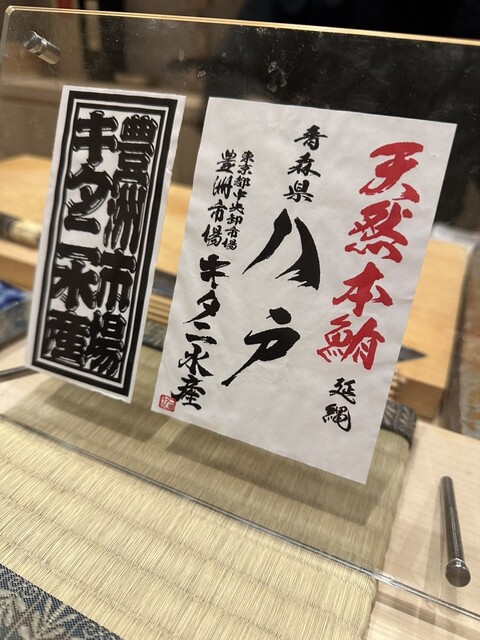 天然本鮪
延縄
青森県
八戸
東京都中央卸市場
豊洲市場
キタニ水産
豊洲市場
キタニ水産